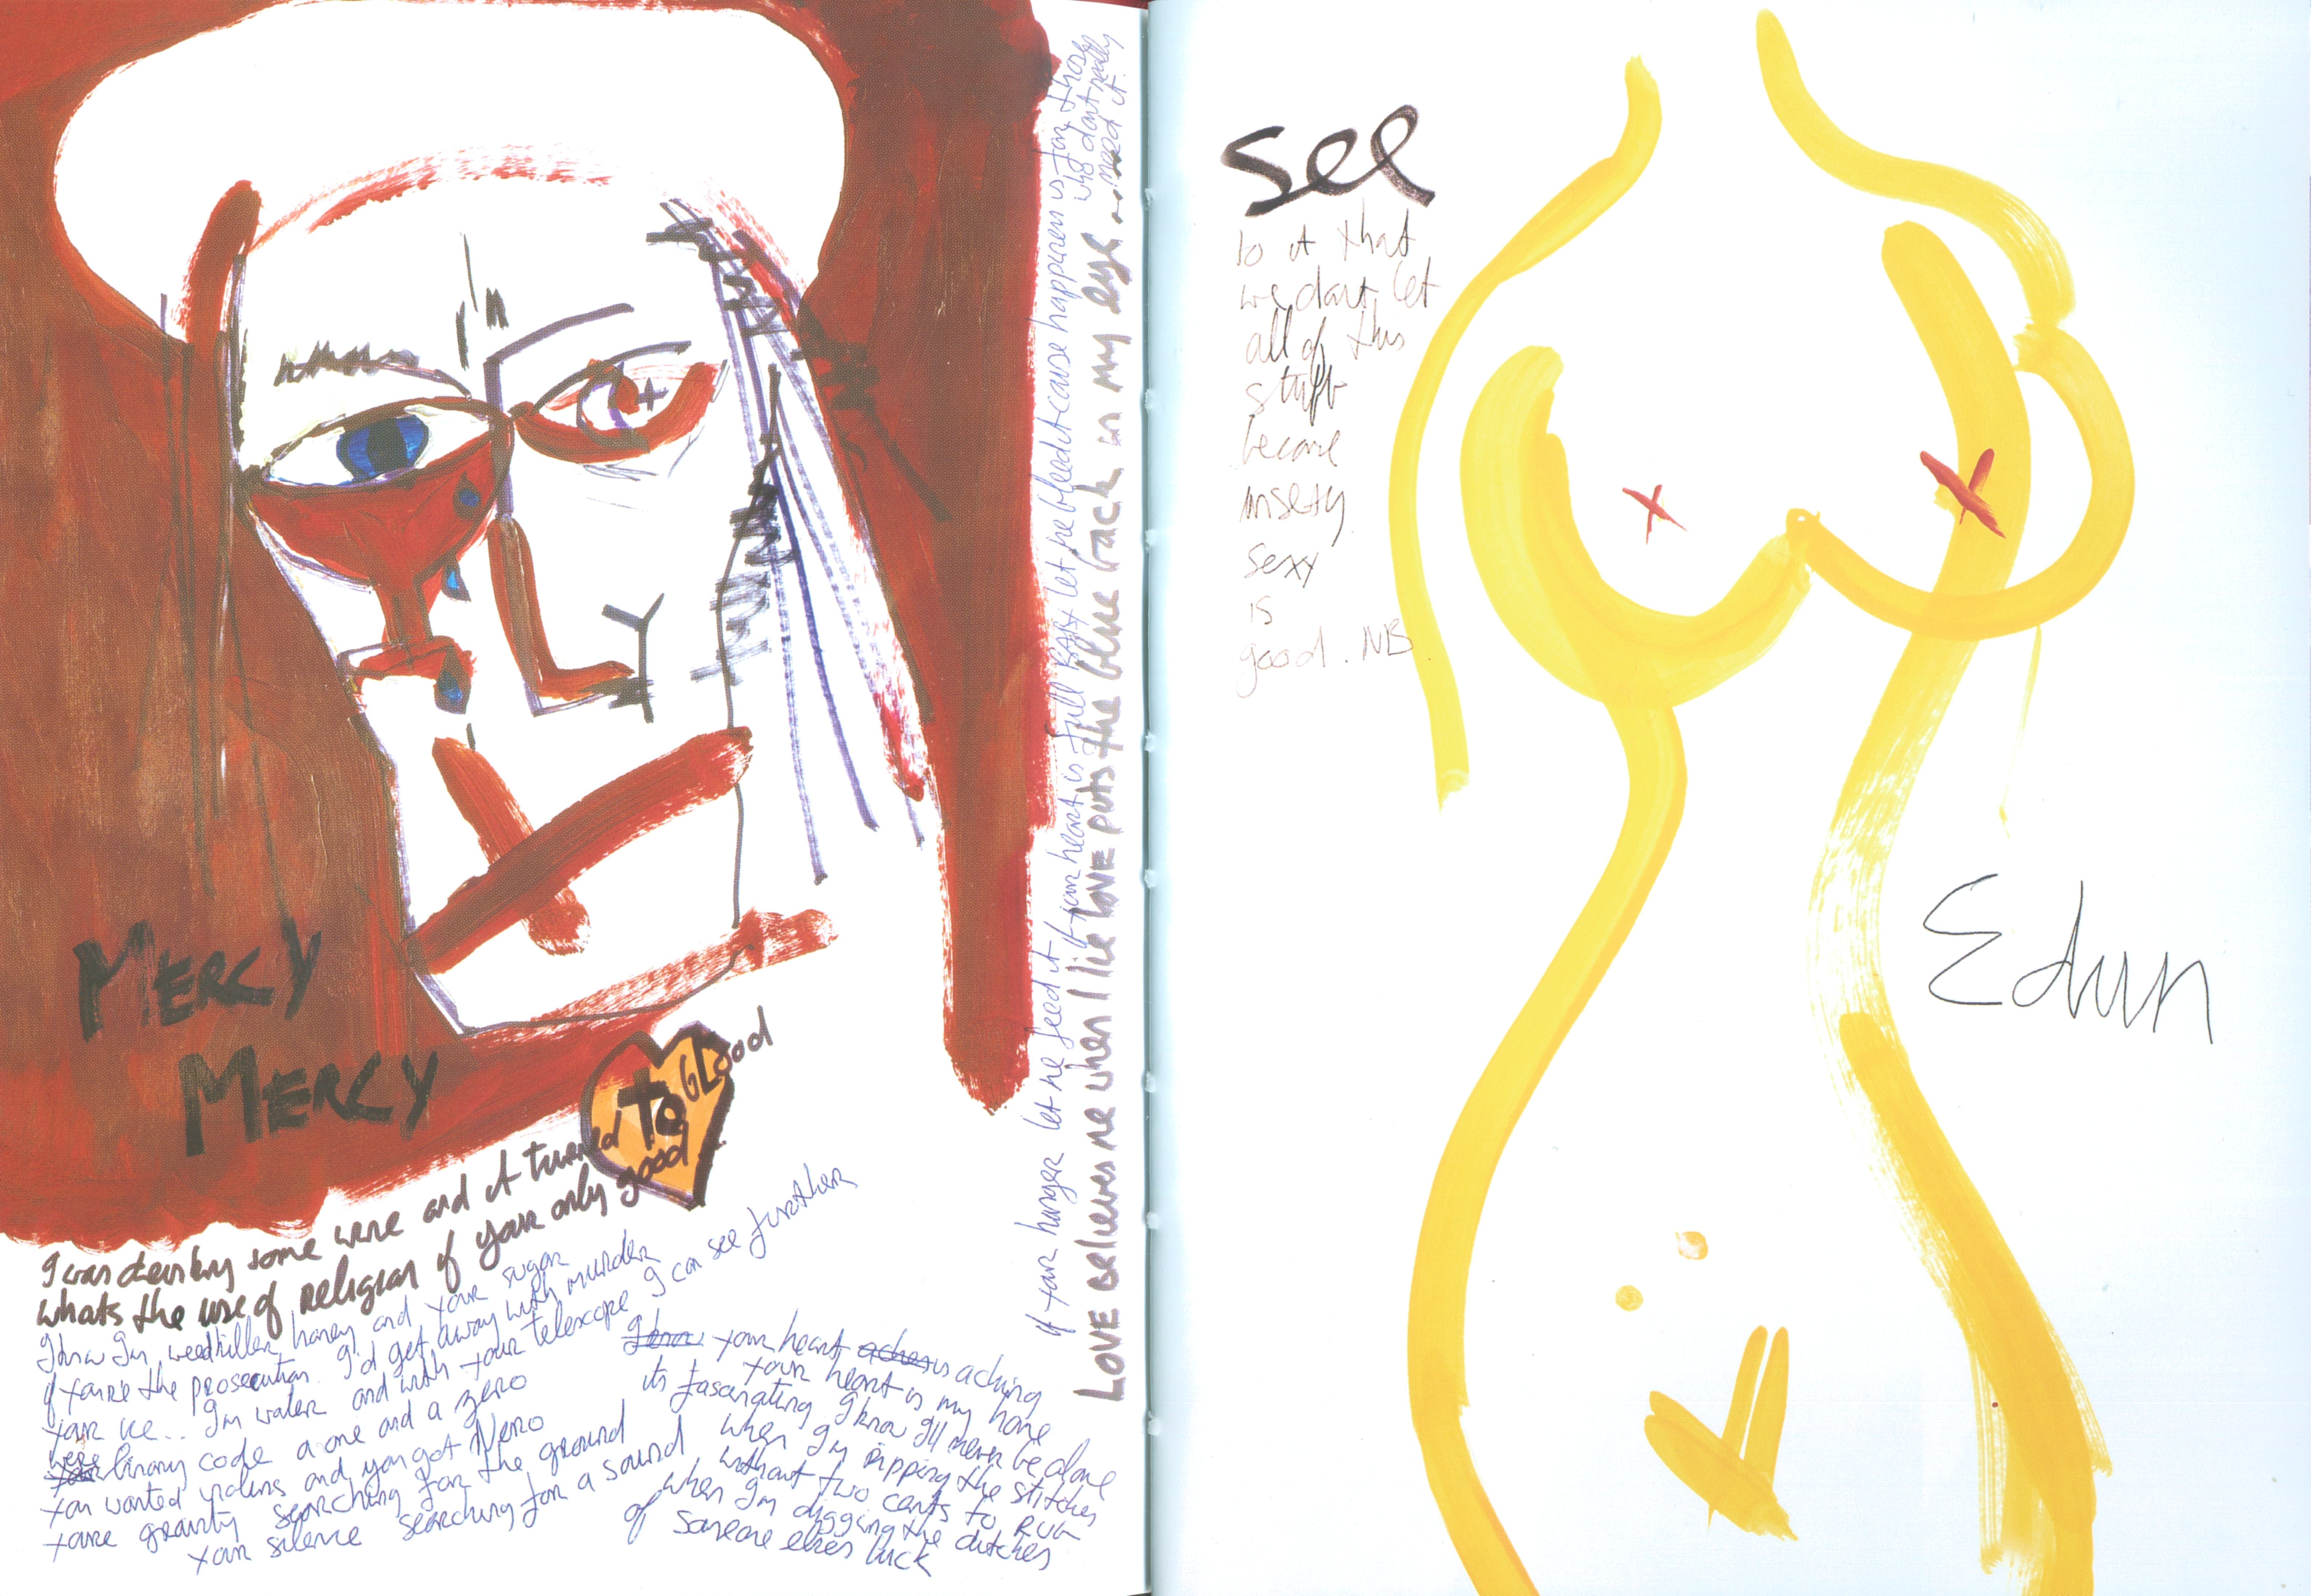 MERCY
MERCY
I was drinking some wine and it turned to blood
whats the use of religion if your only good
I know Im weedkiller honey and your sugar
if you're the prosecution I'd get away with murder
your ice.. Im water and with your telescope I can see further
were binary code a one and a zero
you wanted violins and you got Nero
youre gravity searching for the ground
your silence searching for a sound
your heart is aching
your heart is my home
its fascinating I know Ill never be alone
when Im ripping the stitches
without two cents to rub
when Im digging the ditches
of someone elses luck
if your hunger let me feed it if your heart is full baby let me bleed it cause happiness is for those
who dont really
need it.
LOVE BELIEVES ME WHEN I LIE LOVE PUTS the blue back in my eye....
see
to it that
we dont let
all of this
stuff
become
unsexy
sexy
is
good. NB
Edun